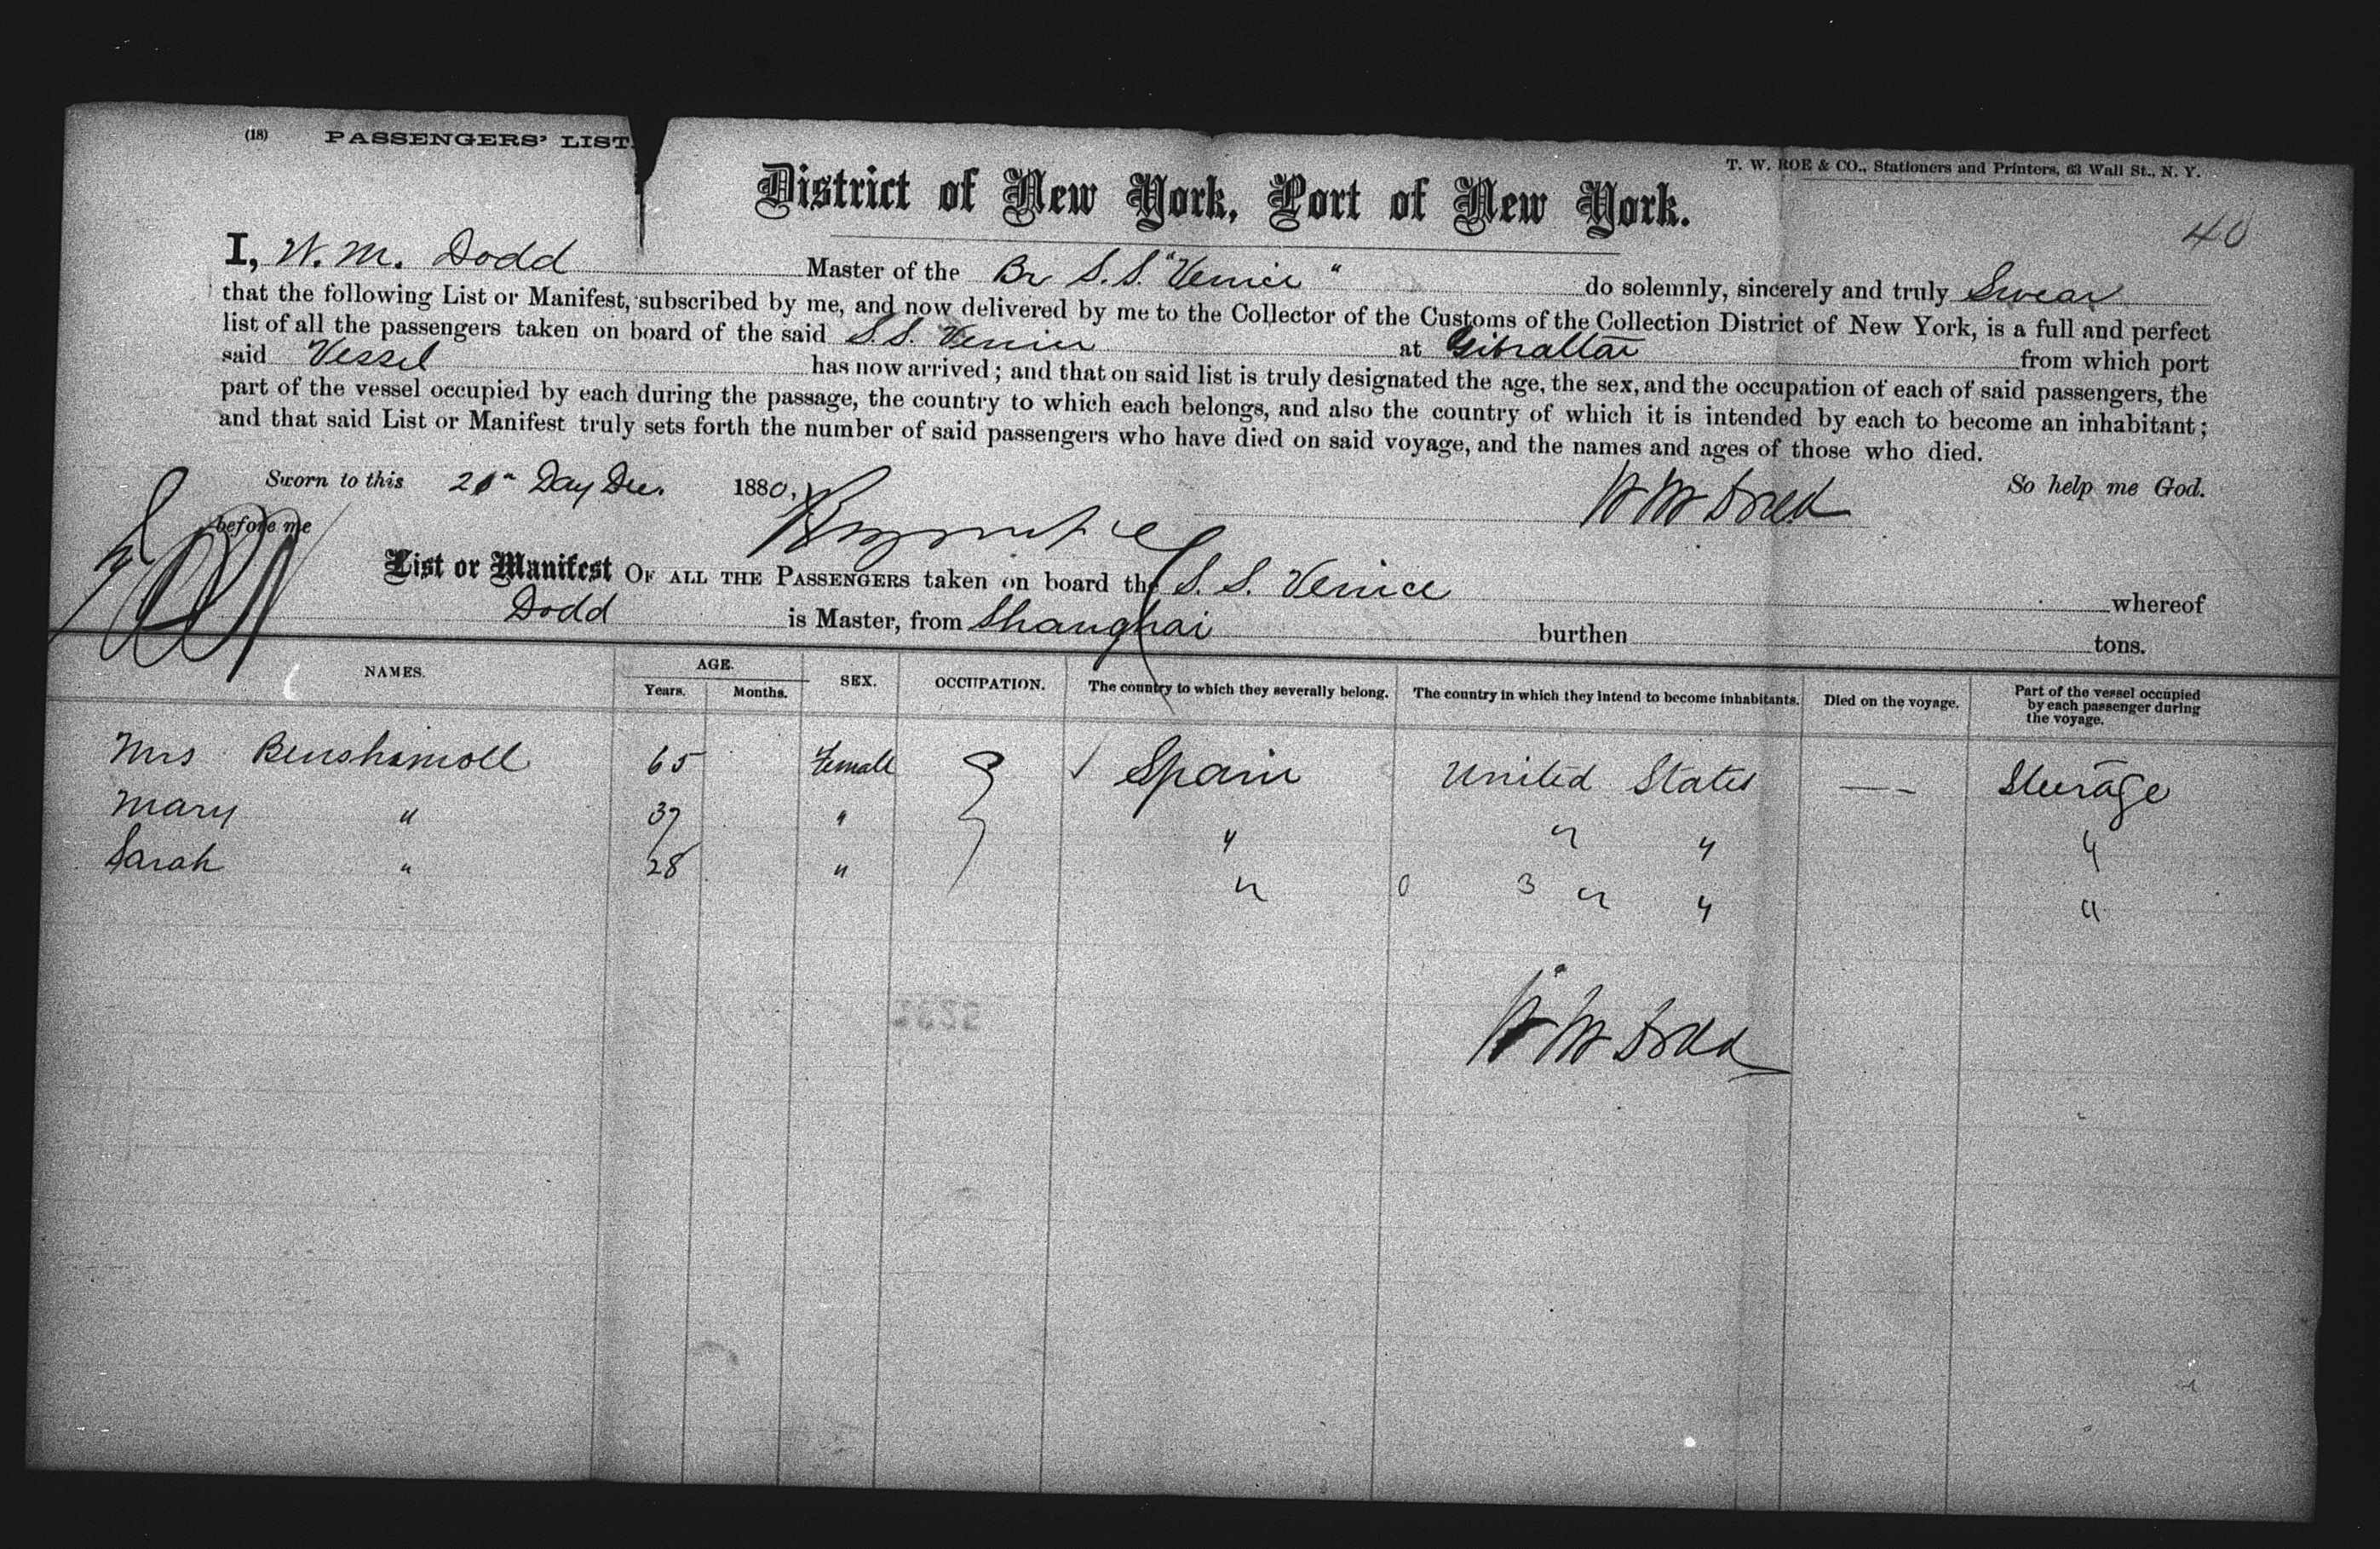 (18) PASSENGERS' LIST.
T. W. ROE & CO., Stationers and Printers, 63 Wall St., N. Y.
District of New York, Port of New York.
40
I, W. M. Dodd Master of the Br S.S. "Venice" do solemnly, sincerely and truly Swear
that the following List or Manifest, subscribed by me, and now delivered by me to the Collector of the Customs of the Collection District of New York, is a full and perfect
list of all the passengers taken on board of the said S.S. Venice at Gibraltar from which port
said Vessel has now arrived; and that on said list is truly designated the age, the sex, and the occupation of each of said passengers, the
part of the vessel occupied by each during the passage, the country to which each belongs, and also the country of which it is intended by each to become an inhabitant;
and that said List or Manifest truly sets forth the number of said passengers who have died on said voyage, and the names and ages of those who died.
Sworn to this Day Dec. 1880, W M Dodd So help me God.
before me
List or Manifest OF ALL THE PASSENGERS taken on board the S. S. Venice whereof
Dodd is Master, from Shanghai burthen tons.
NAMES. AGE. Years. Months. SEX. OCCUPATION. The country to which they severally belong. The country in which they intend to become inhabitants. Died on the voyage. Part of the vessel occupied by each passenger during the voyage.
Mrs Benshimoll 65 Female Spain United States — - Steerage
Mary " 37 " " " " "
Sarah " 28 " " 0 3 " " "
W M Dodd